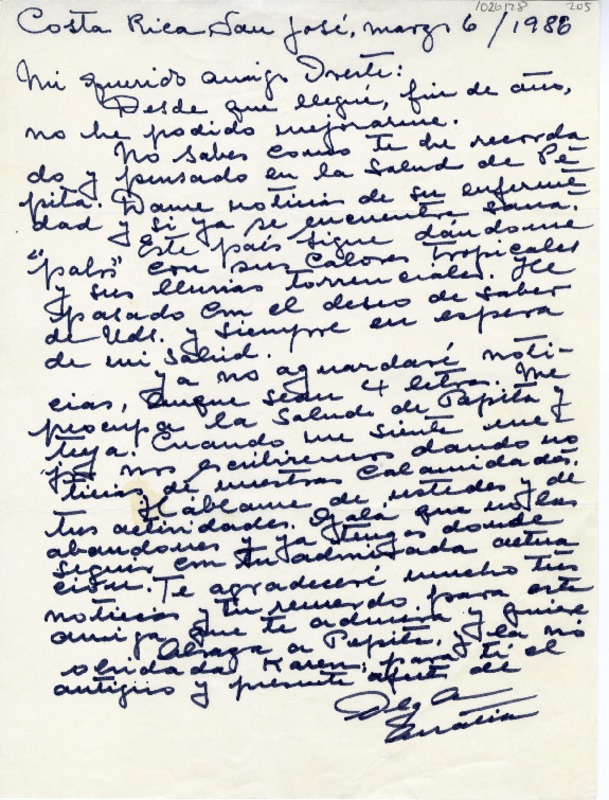 1026128 205
Costa Rica, San José, marzo 6/1986
Mi querido amigo Oreste:
Desde que llegué, fin de año,
no he podido mejorarme.
No sabes como te he recorda
do y pensado en la salud de Pe
pita. Dame noticias de su enferme
dad y si ya se encuentra sana.
Este país sigue dándome
"palos" con sus calores tropicales
y sus lluvias torrenciales. He
pasado con el deseo de saber
de Uds. y siempre en espera
de mi salud.
Ya no aguardaré noti-
cias, aunque sean 4 letras. Me
preocupa la salud de Pepita y
tuya. Cuando me siente me-
jor nos escribiremos dando no
ticias de nuestras calamidades.
Háblame de ustedes y de
tus actividades. Ojalá que no las
abandones y ya tengas donde
seguir con tu admirada actua
ción. Te agradeceré mucho tus
noticias y tu recuerdo para esta
amiga que te admira y quiere
Abraza a Pepita, y la no
olvidada Karen; para ti el
antiguo y presente afecto de
Olga